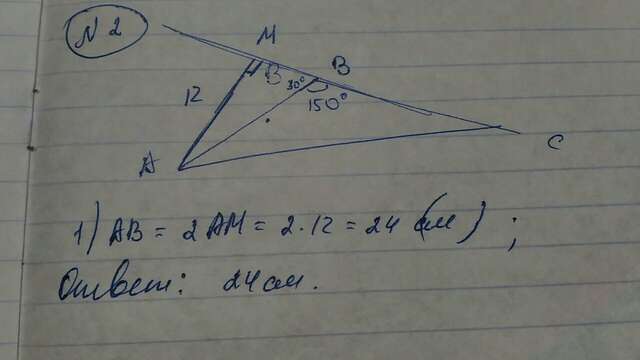 N 2
M
B
B
30°
150°
12
A
C
1) AB = 2AM = 2·12 = 24 (см) ;
Ответ: 24см.